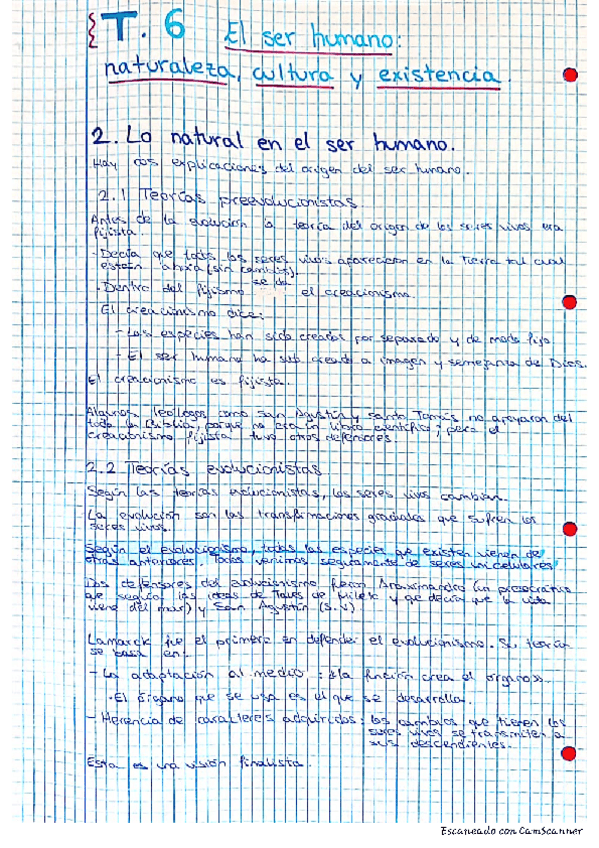 T. 6 El ser humano:
naturaleza, cultura y existencia.
2. Lo natural en el ser humano.
Hay dos explicaciones del origen del ser humano.
2.1 Teorías preevolucionistas
Antes de la evolución la teoría del origen de los seres vivos era
fijista.
- Decía que todos los seres vivos aparecieron en la Tierra tal cual
están ahora (sin cambios).
- Dentro del fijismo se da el creacionismo.
El creacionismo dice:
- Las especies han sido creadas por separado y de modo fijo
- El ser humano ha sido creado a imagen y semejanza de Dios.
El creacionismo es fijista.
Algunos teólogos como San Agustín y Santo Tomás no apoyaron del
todo la Biblia, porque no era un libro científico; pero el
creacionismo fijista tuvo otros defensores
2.2 Teorías evolucionistas
Según las teorías evolucionistas, los seres vivos cambian.
La evolución son las transformaciones graduales que sufren los
seres vivos.
Según el evolucionismo, todas las especies que existen vienen de
otras anteriores. Todos venimos seguramente de seres unicelulares
Dos defensores del evolucionismo fueron Anaximandro (un presocrático
que seguía las ideas de Tales de Mileto y que decía que la vida
viene del mar) y San Agustín (S. V)
Lamarck fue el primero en defender el evolucionismo. Su teoría
se basa en:
- La adaptación al medio: «la función crea el órgano».
· El órgano que se usa es el que se desarrolla.
- Herencia de caracteres adquiridos: los cambios que tienen los
seres vivos se transmiten a
sus descendientes.
Esta es una visión finalista.
Escaneado con CamScanner